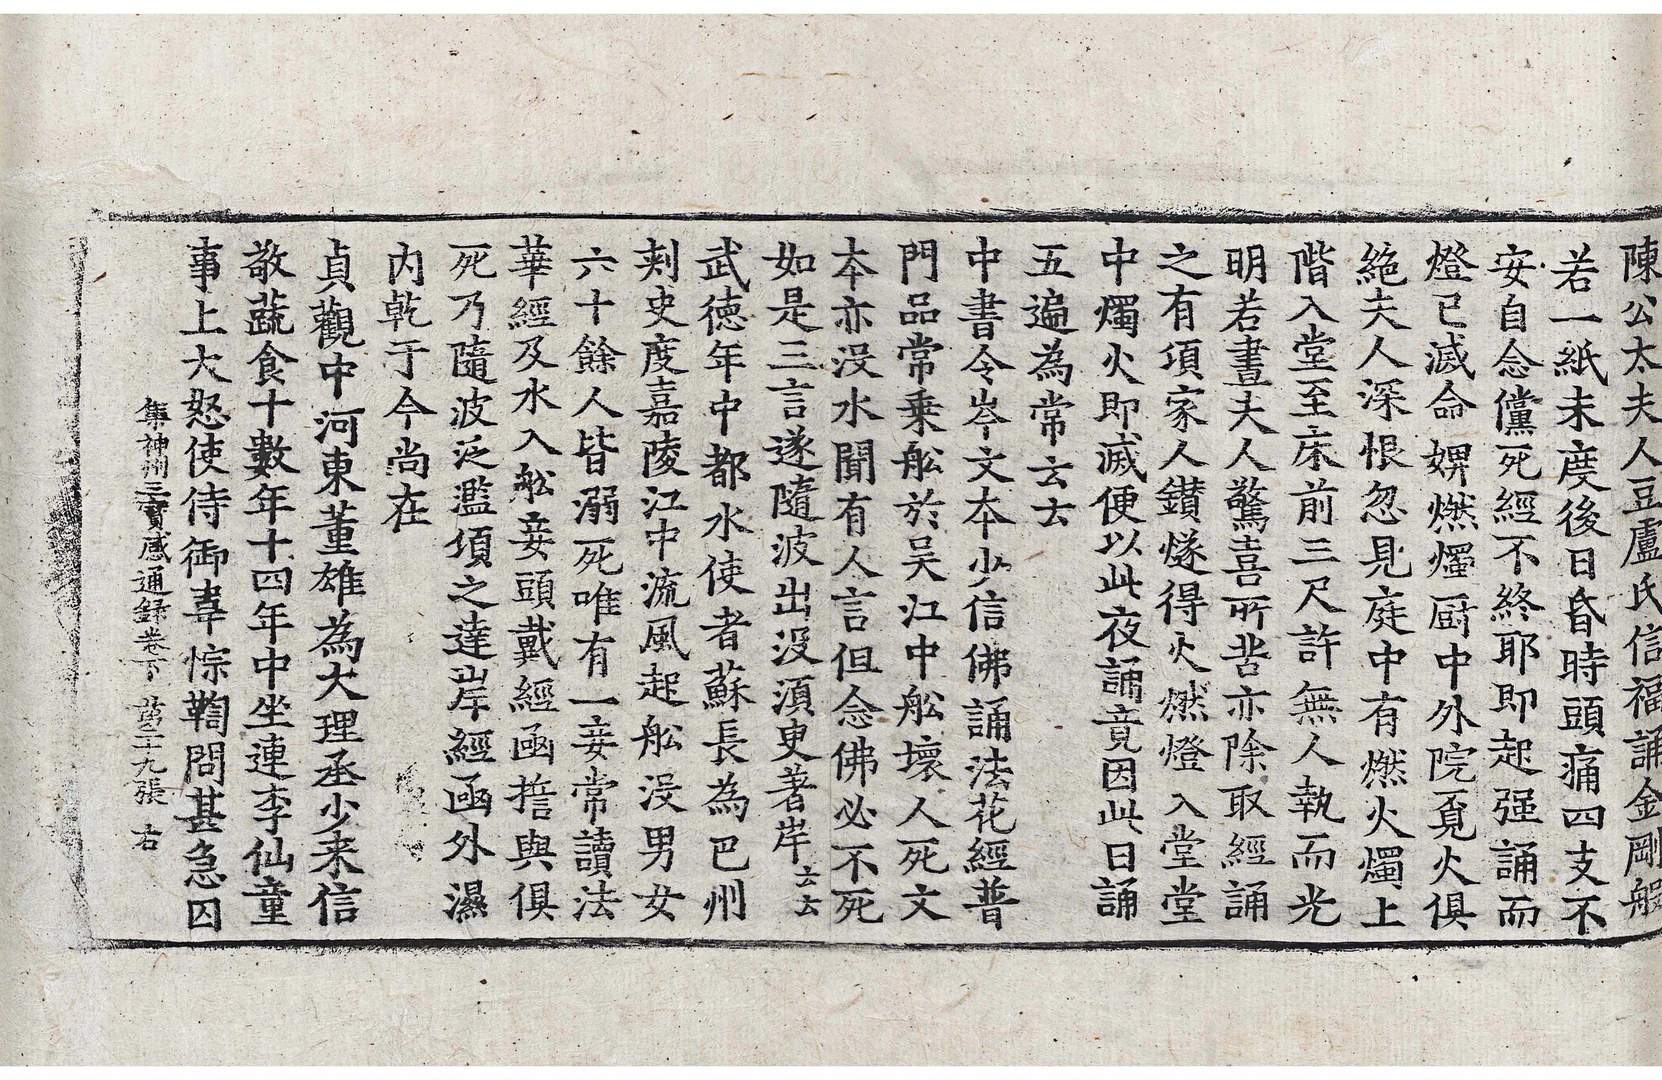 陳公太夫人豆盧氏信福誦金剛般
若一紙未度後日昏時頭痛四支不
安自念儻死經不終耶即起强誦而
燈已滅命婢燃燭厨中外院覓火俱
絶夫人深恨忽見庭中有燃火燭上
階入堂至床前三尺許無人執而光
明若晝夫人驚喜所苦亦除取經誦
之有項家人鑚燧得火燃燈入堂堂
中燭火即滅便以此夜誦竟因此日誦
五遍為常云云
中書令岑文夲少信佛誦法花經普
門品常乗舩於吴江中舩壊人死文
夲亦没水聞有人言但念佛必不死
如是三言遂隨波出没湏臾著岸云云
武徳年中都水使者蘇長為巴州
刾史度嘉陵江中流風起舩没男女
六十餘人皆溺死唯有一妾常讀法
華經及水入舩妾頭戴經函誓與俱
死乃隨波泛濫項之達岸經函外濕
内乾于今尚在
貞觀中河東董雄為大理丞少来信
敬蔬食十數年十四年中坐連李仙童
事上大怒使侍御韋悰鞫問甚急囚
集神州三寳感通録卷下 第三十九張 右